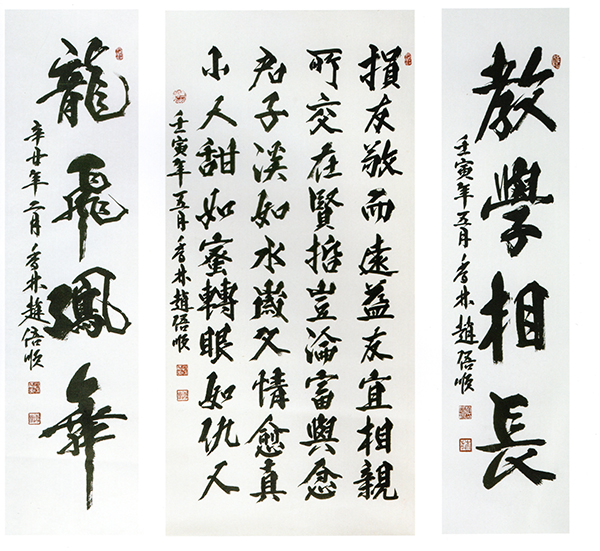 教學相長
壬寅年五月 香林 趙順
損友敬而遠益友宜相親
所交在賢德豈論富與貧
君子淡如水歲久情愈真
小人甜如蜜轉眼如仇人
壬寅年五月 香林 趙順
龍飛鳳舞
辛丑年二月 香林 趙順